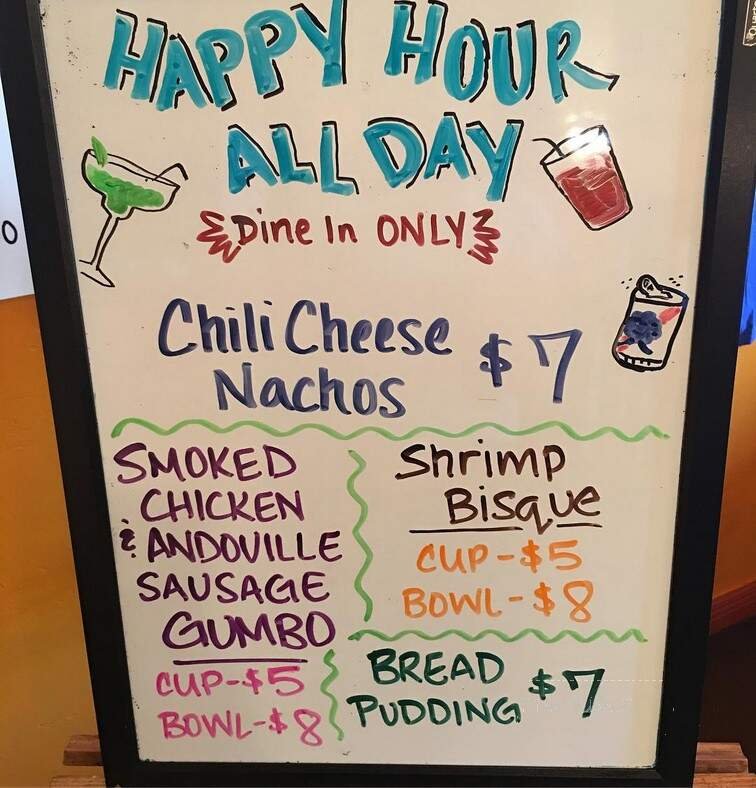 HAPPY HOUR
ALL DAY
Dine In ONLY
Chili Cheese
Nachos
$7
SMOKED
CHICKEN
& ANDOUILLE
SAUSAGE
GUMBO
CUP-$5
BOWL-$8
Shrimp
Bisque
CUP-$5
BOWL-$8
BREAD
PUDDING
$7